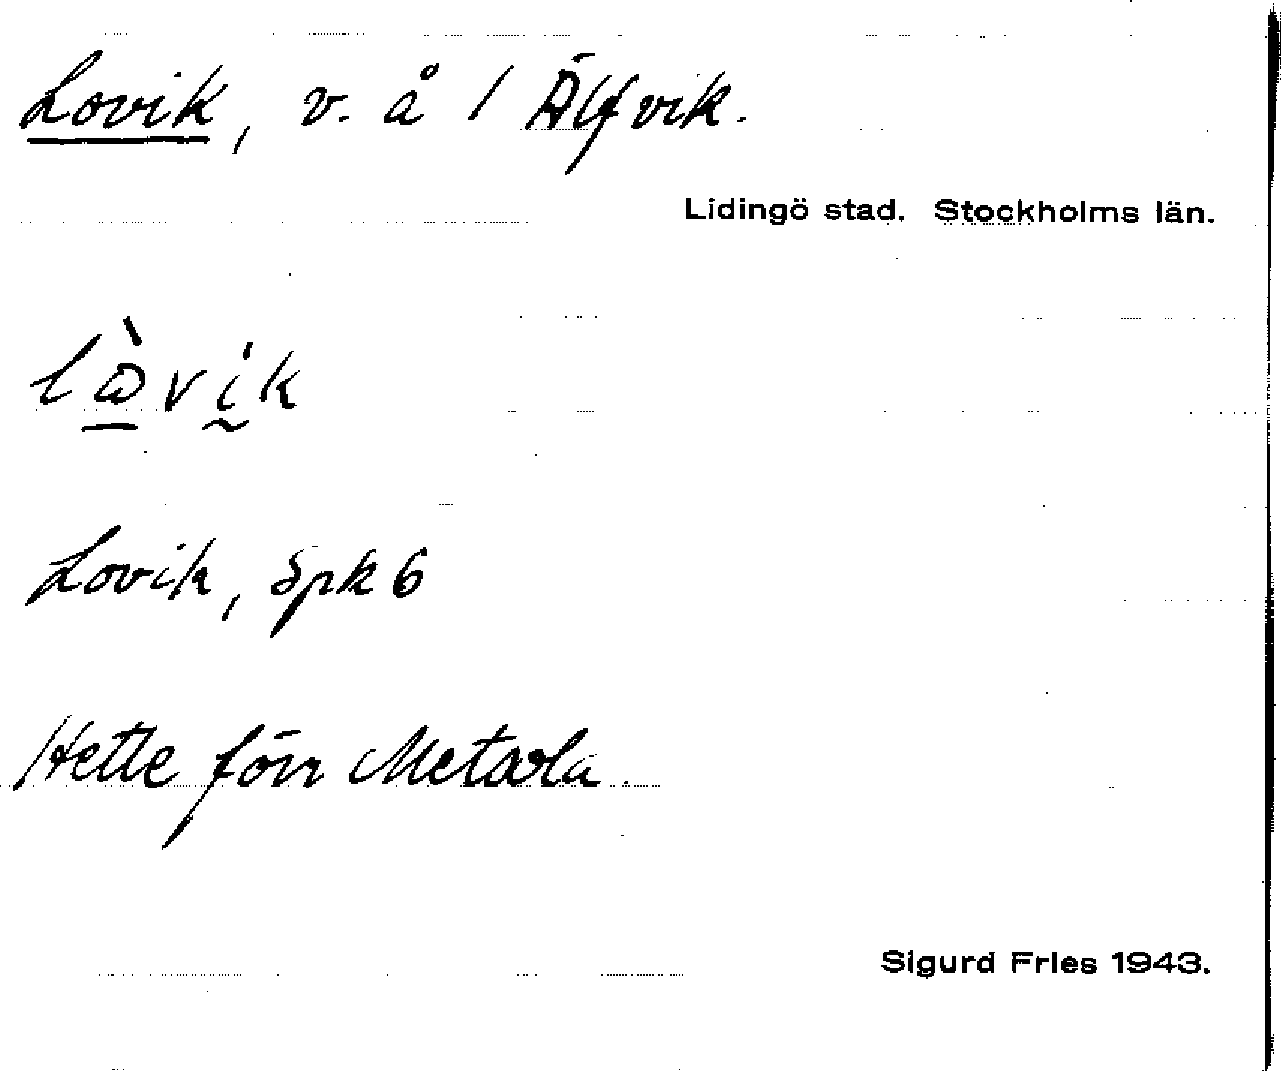 Lovik, v. å / Älfvik.
Lidingö stad. Stockholms län.
lò̱vḭk
Lovik, Spk 6
Hette förr Metarla.
Sigurd Fries 1943.